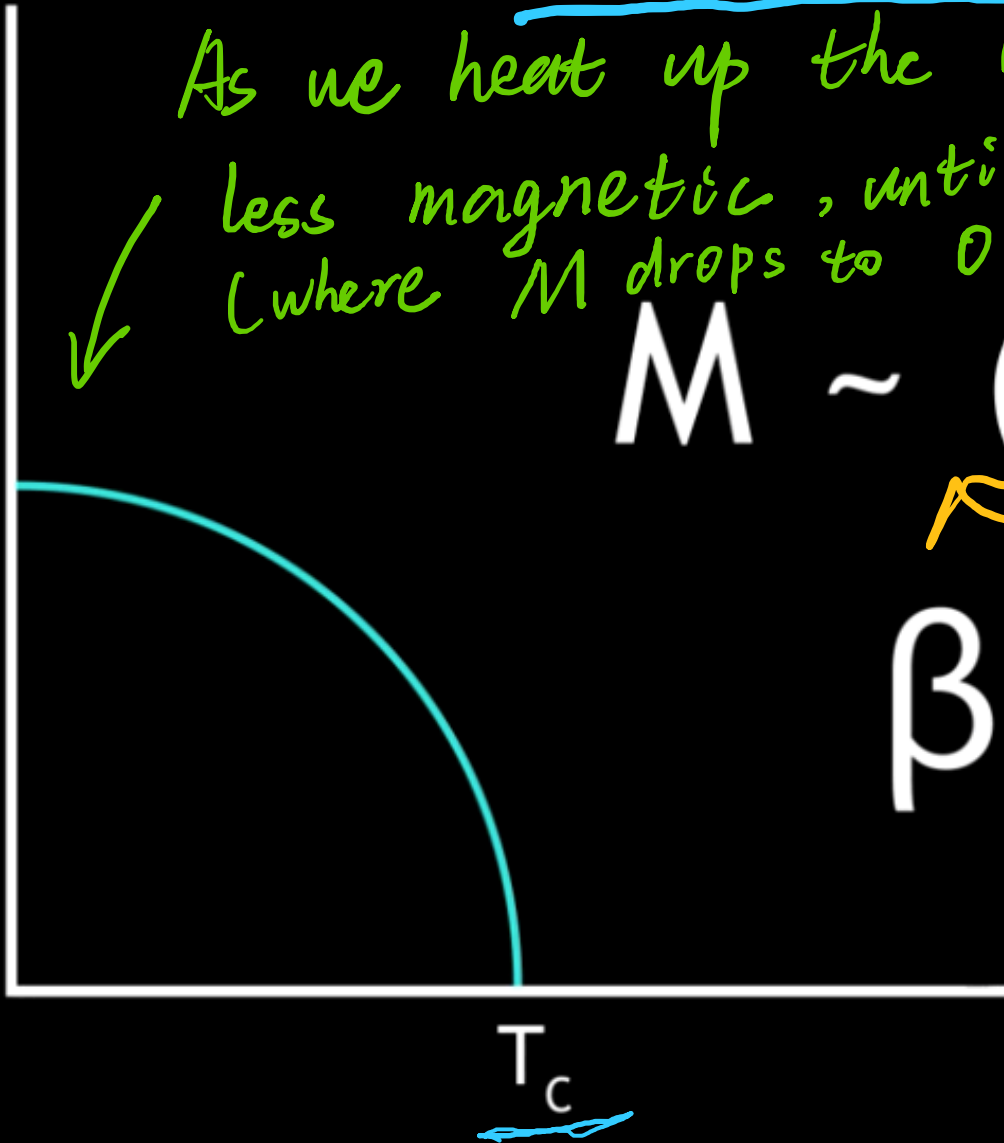 As we heat up the
less magnetic, unti
(where M drops to 0
M ~ (
β
Tc